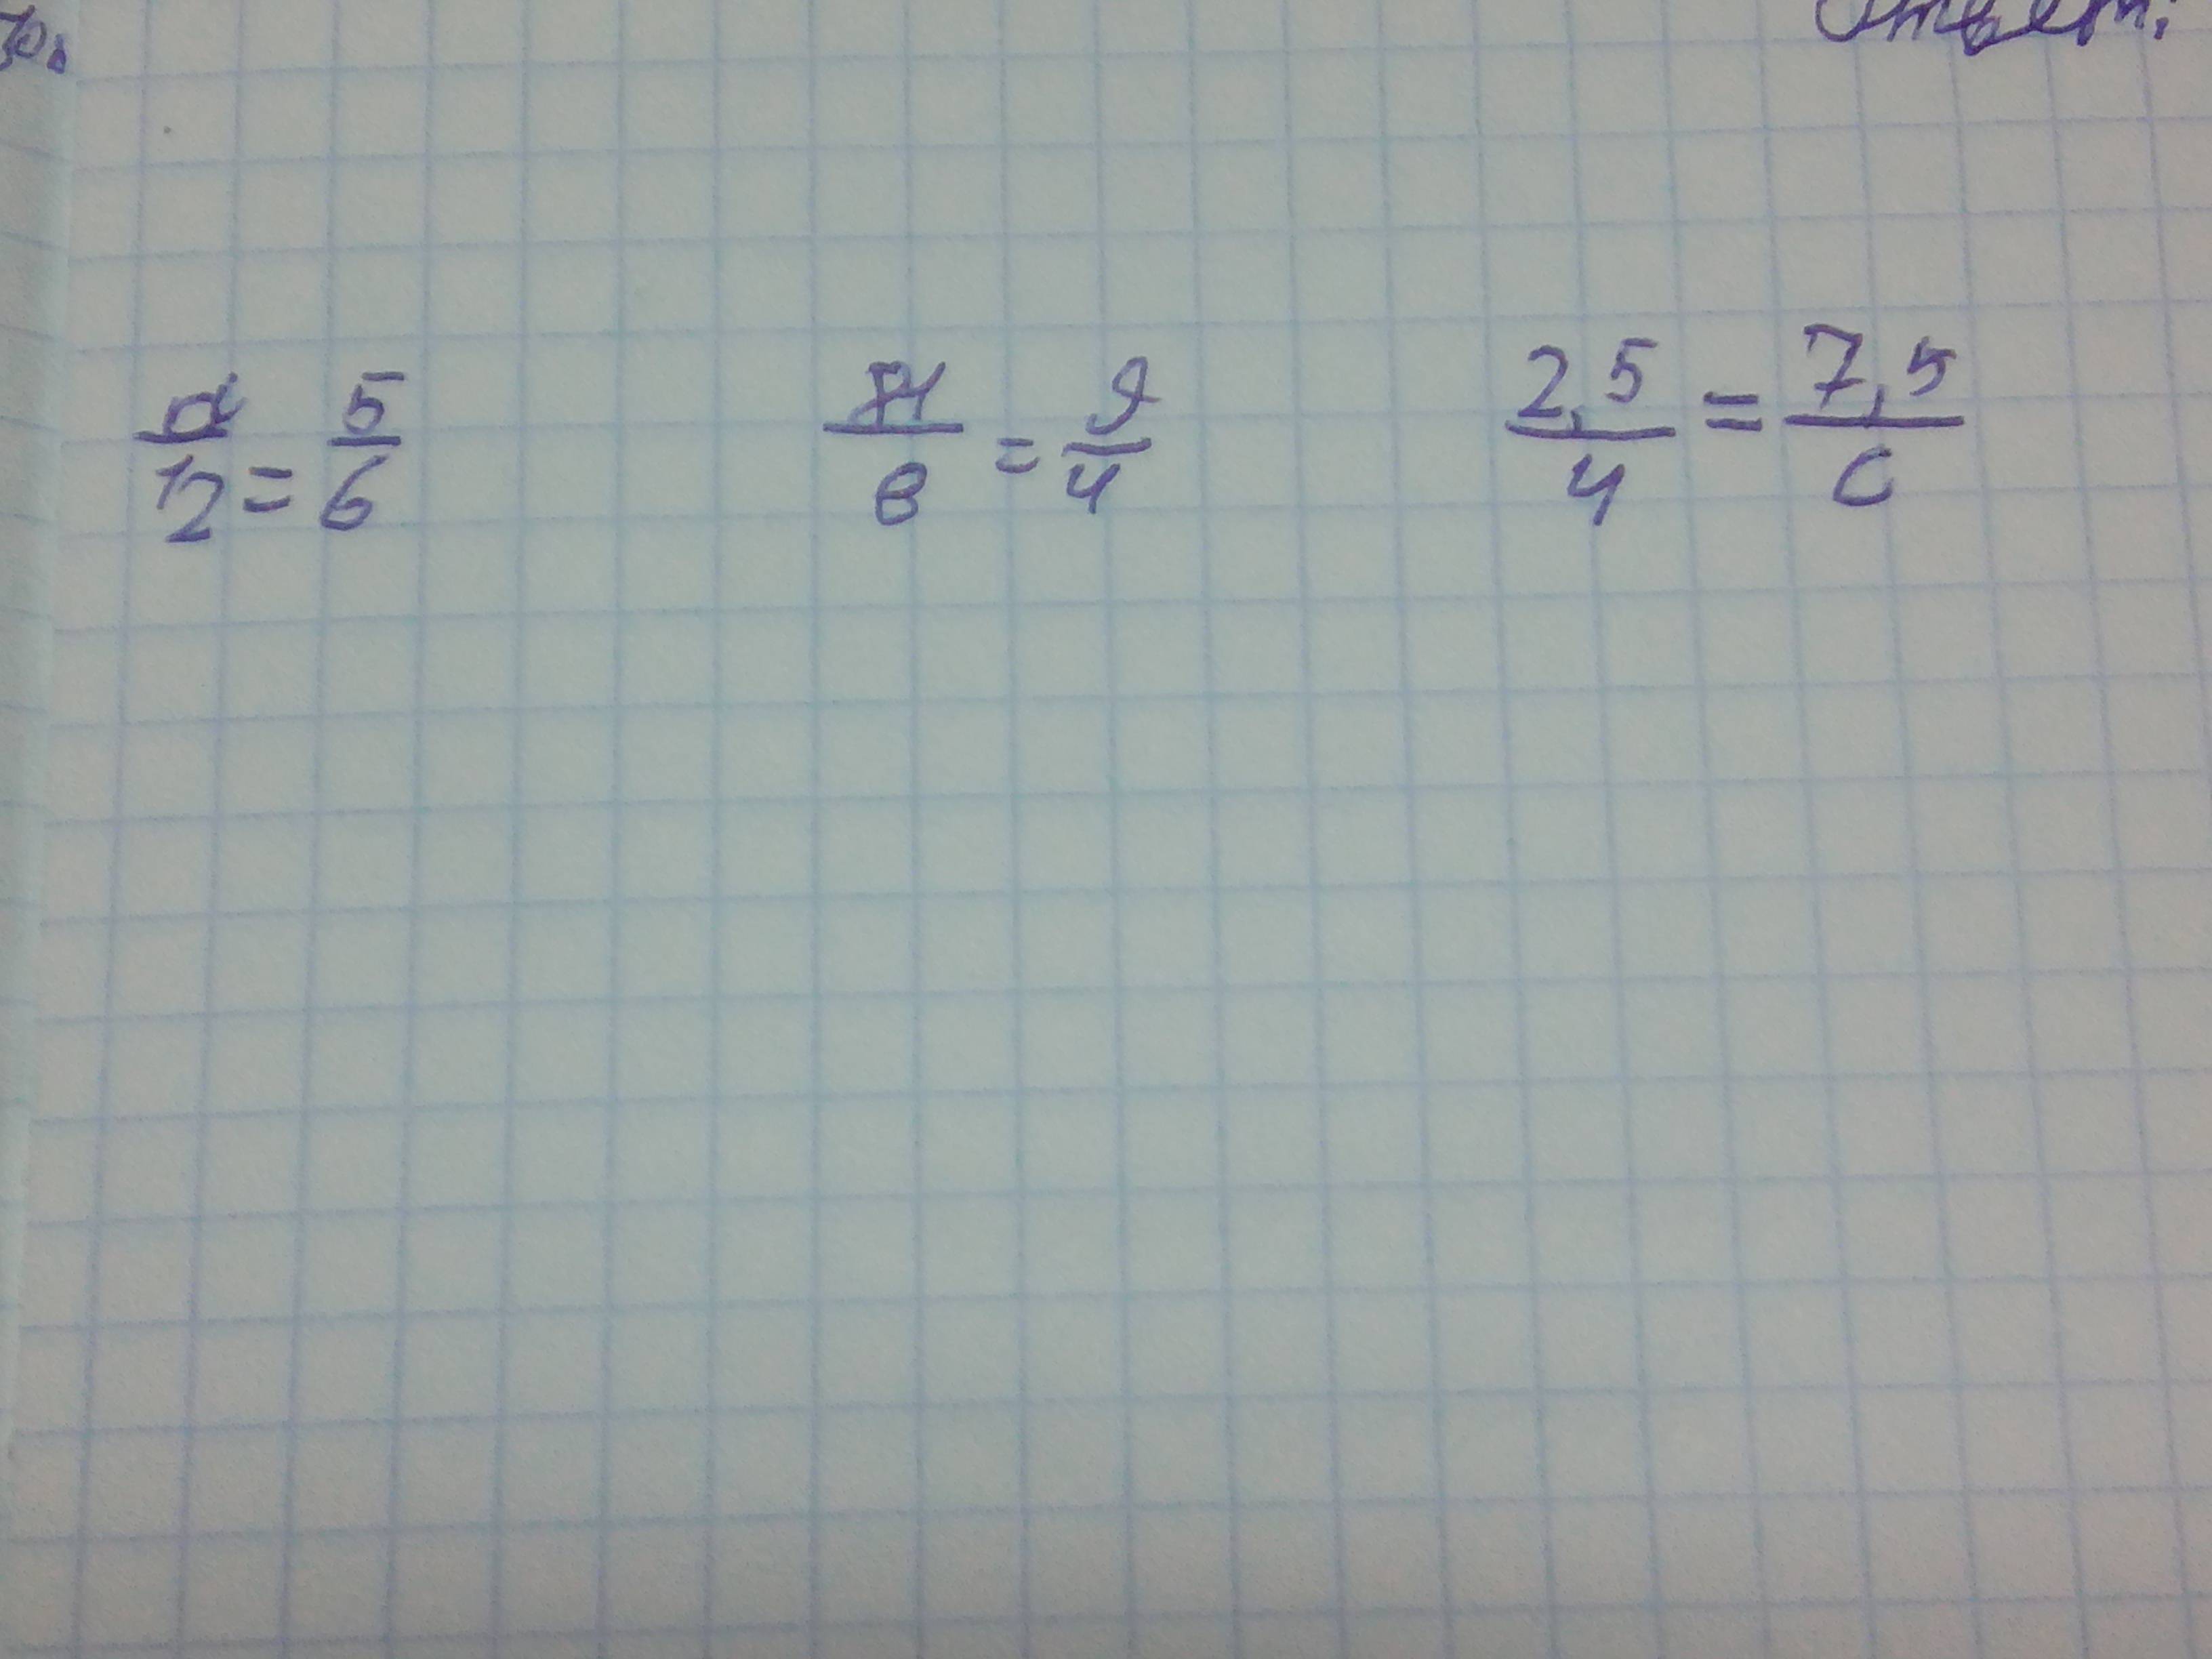 Ответ:
a/12 = 5/6
81/в = 9/4
2,5/4 = 7,5/c